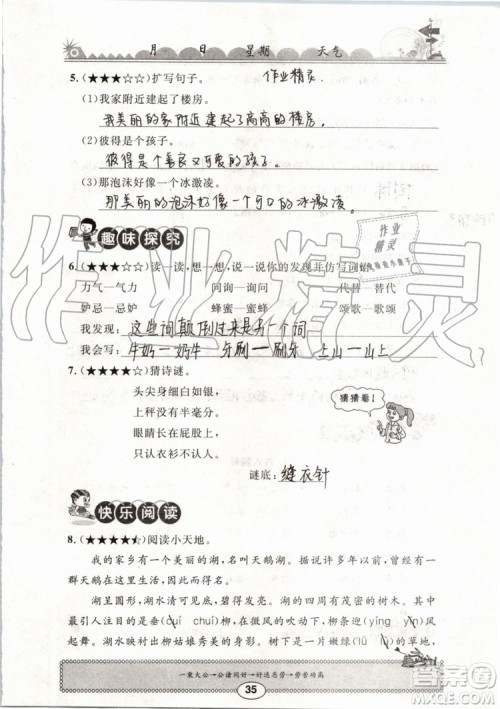 月 日 星期 天气
5.(★★★☆☆)扩写句子。 作业精灵
(1)我家附近建起了楼房。
我美丽的家附近建起了高高的楼房。
(2)彼得是个孩子。
彼得是个善良又可爱的孩子。
(3)那泡沫好像一个冰激凌。
那美丽的泡沫好像一个可口的冰激凌。
作业精灵
作业
精灵
趣味探究
6.(★★★☆☆)读一读,想一想,说一说你的发现并仿写词语。
力气—气力 问询—询问 代替—替代
妒忌—忌妒 蜂蜜—蜜蜂 颂歌—歌颂
我发现:这些词颠倒过来是另一个词
我会写:牛奶—奶牛 牙刷—刷牙 上山—山上
7.(★★★★☆)猜诗谜。
头尖身细白如银,
上秤没有半毫分。
眼睛长在屁股上,
只认衣衫不认人。
猜猜看!
谜底:缝衣针
快乐阅读
8.(★★★★☆)阅读小天地。
我的家乡有一个美丽的湖,名叫天鹅湖。据说许多年以前,曾经有一
群天鹅在这里生活,因此而得名。
湖呈圆形,湖水清可见底,碧绿发亮。湖的四周有茂密的树木。其中
最引人注目的是(cuī chuí)柳,在微风的吹动下,柳枝(yíng yīn)风
起舞。湖水映照着柳姑娘秀美的身影。树下是一片嫩绿(lǜ lù)的草地,
一秉大公→公诸同好→好逸恶劳→劳苦功高
35
答案圈